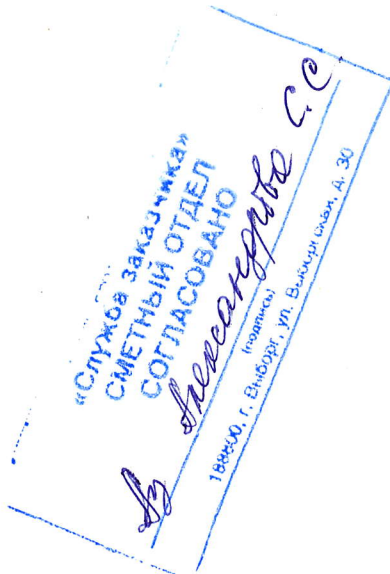 «Служба заказчика»
СМЕТНЫЙ ОТДЕЛ
СОГЛАСОВАНО
Александрова С.С
(подпись)
188800, г. Выборг, ул. Выборгская, д. 30